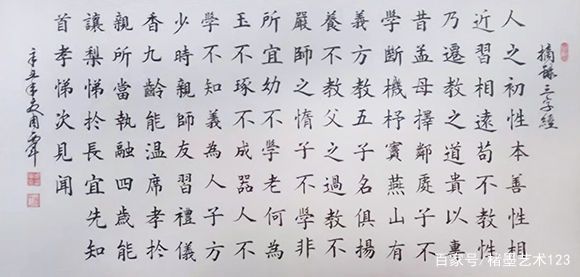 摘錄三字經
人之初性本善性相
近習相遠苟不教性
乃遷教之道貴以專
昔孟母擇鄰處子不
學斷機杼竇燕山有
義方教五子名俱揚
養不教父之過教不
嚴師之惰子不學非
所宜幼不學老何為
玉不琢不成器人不
學不知義為人子方
少時親師友習禮儀
香九齡能溫席孝於
親所當執融四歲能
讓梨悌於長宜先知
首孝悌次見聞
辛丑年夏周
百家号/楮墨艺术123